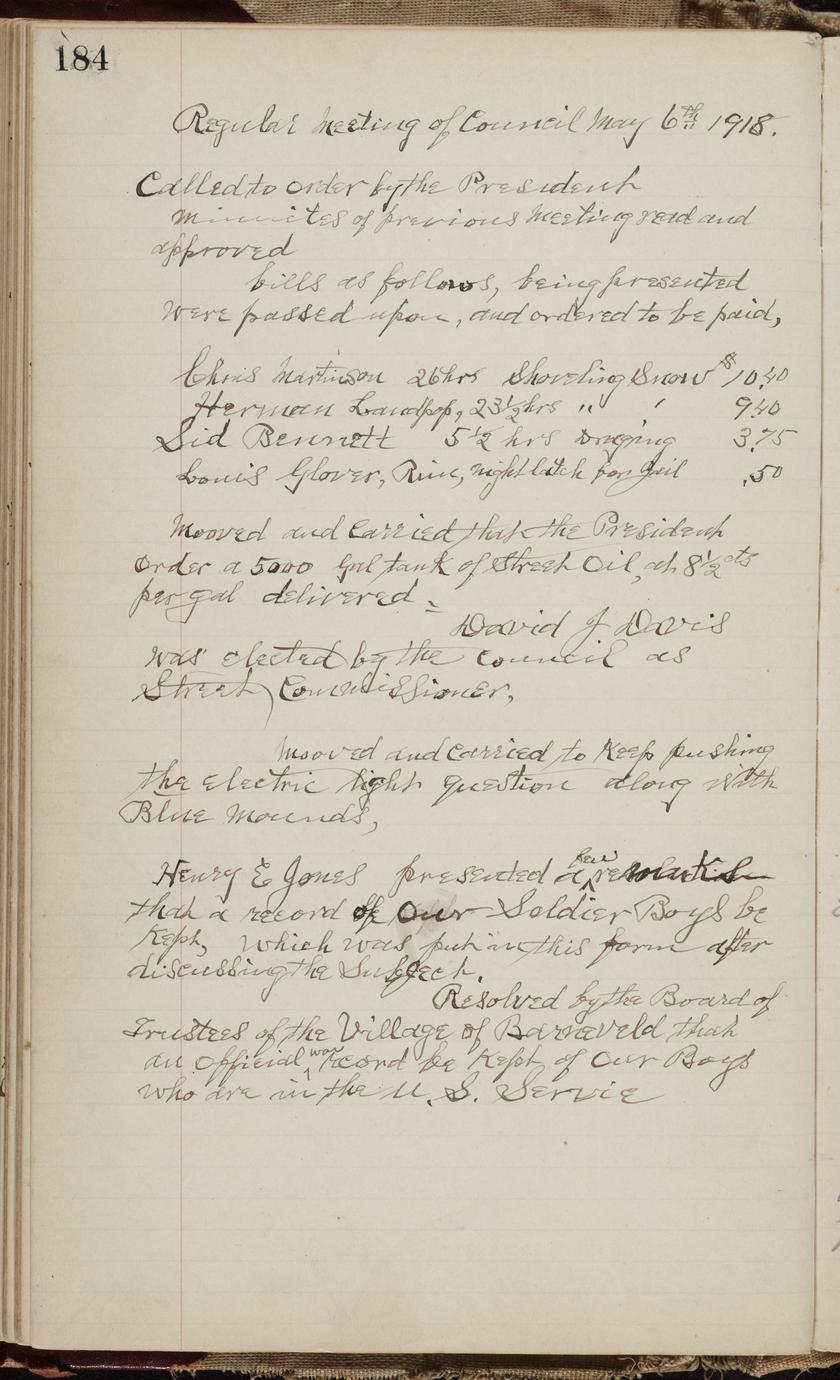 184
Regular Meeting of Council May 6th 1918.
Called to order by the President
Minnuites of previous Meeting read and
approved
bills as follows, being presented
were passed upon, and ordered to be paid,
Chris Martinson 26 hrs Shoveling Snow $10.40
Herman Landpop, 23 1/2 hrs " ' 9.40
Sid Bennett 5 1/2 hrs Draging 3.75
Louis Glover, Rim, night latch for Jail .50
Mooved and Carried that the President
Order a 5000 Gal tank of Street Oil, at 8 1/2 cts
per gal delivered.
David J Davis
was elected by the Council as
Street Commissioner,
Mooved and carried to Keep pushing
the electric light question along with
Blue Mounds,
Henry E Jones presented a
that a record of Our Soldier Boys be
Kept, which was put in this form after
discussing the Subject.
Resolved by the Board of
Trustees of the Village of Barneveld that
an official war record be Kept of Our Boys
who are in the U. S. Servie